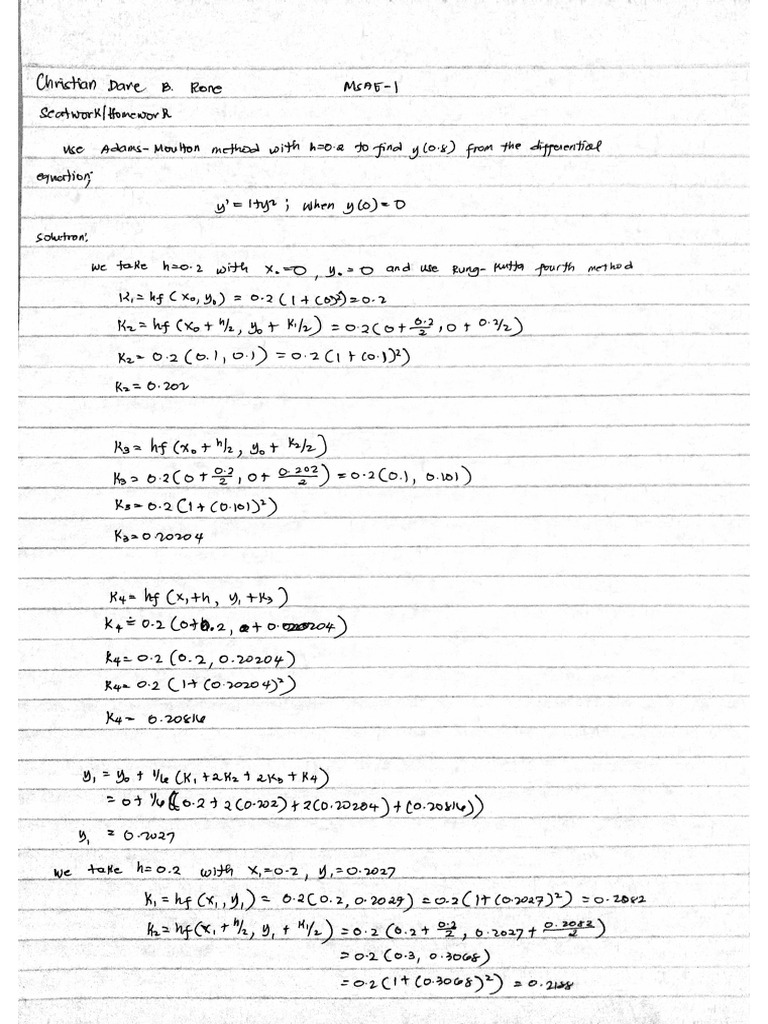 Christian Dave B. Rone MSAE-1
Seatwork/Homework
Use Adams-Moulton method with h=0.2 to find y(0.8) from the differential
equation;
y' = 1+y² ; when y(0) = 0
Solution;
We take h=0.2 with x₀=0, y₀=0 and use Rung-Kutta fourth method
K₁ = hf(x₀, y₀) = 0.2(1+(0)²) = 0.2
K₂ = hf(x₀ + h/2, y₀ + K₁/2) = 0.2(0 + 0.2/2, 0 + 0.2/2)
K₂ = 0.2(0.1, 0.1) = 0.2(1+(0.1)²)
K₂ = 0.202
K₃ = hf(x₀ + h/2, y₀ + K₂/2)
K₃ = 0.2(0 + 0.2/2, 0 + 0.202/2) = 0.2(0.1, 0.101)
K₃ = 0.2(1+(0.101)²)
K₃ = 0.20204
K₄ = hf(x₁+h, y₁+K₃)
K₄ = 0.2(0+0.2, 0+0.20204)
K₄ = 0.2(0.2, 0.20204)
K₄ = 0.2(1+(0.20204)²)
K₄ = 0.20816
y₁ = y₀ + 1/6(K₁+2K₂+2K₃+K₄)
= 0 + 1/6((0.2+2(0.202)+2(0.20204)+(0.20816))
y₁ = 0.2027
We take h=0.2 with x₁=0.2, y₁=0.2027
K₁ = hf(x₁, y₁) = 0.2(0.2, 0.2027) = 0.2(1+(0.2027)²) = 0.2082
K₂ = hf(x₁ + h/2, y₁ + K₁/2) = 0.2(0.2 + 0.2/2, 0.2027 + 0.2082/2)
= 0.2(0.3, 0.3068)
= 0.2(1+(0.3068)²) = 0.2188